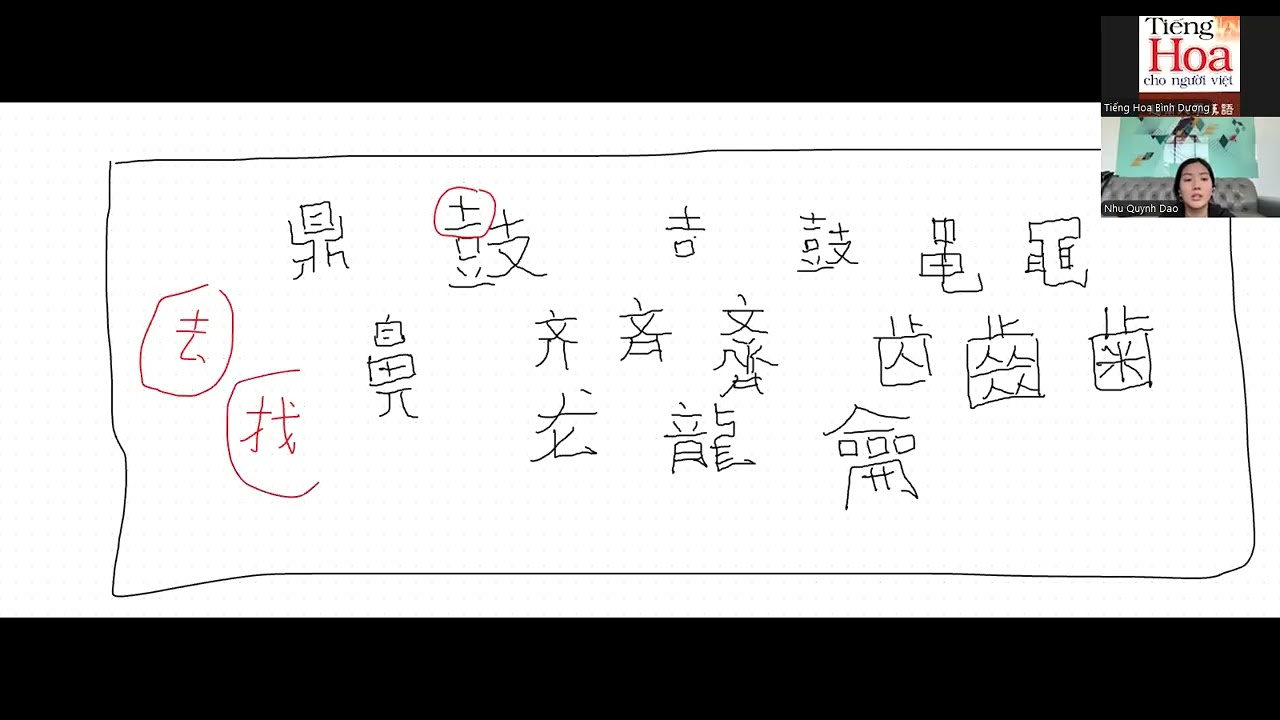 Tiếng
Hoa
cho người việt
Tiếng Hoa Bình Dương
語
Nhu Quynh Dao
鼎 鼓 吉 鼓 黾
去 鼻 齐 斉 齋 齿 齒 歯
找 龙 龍 龠